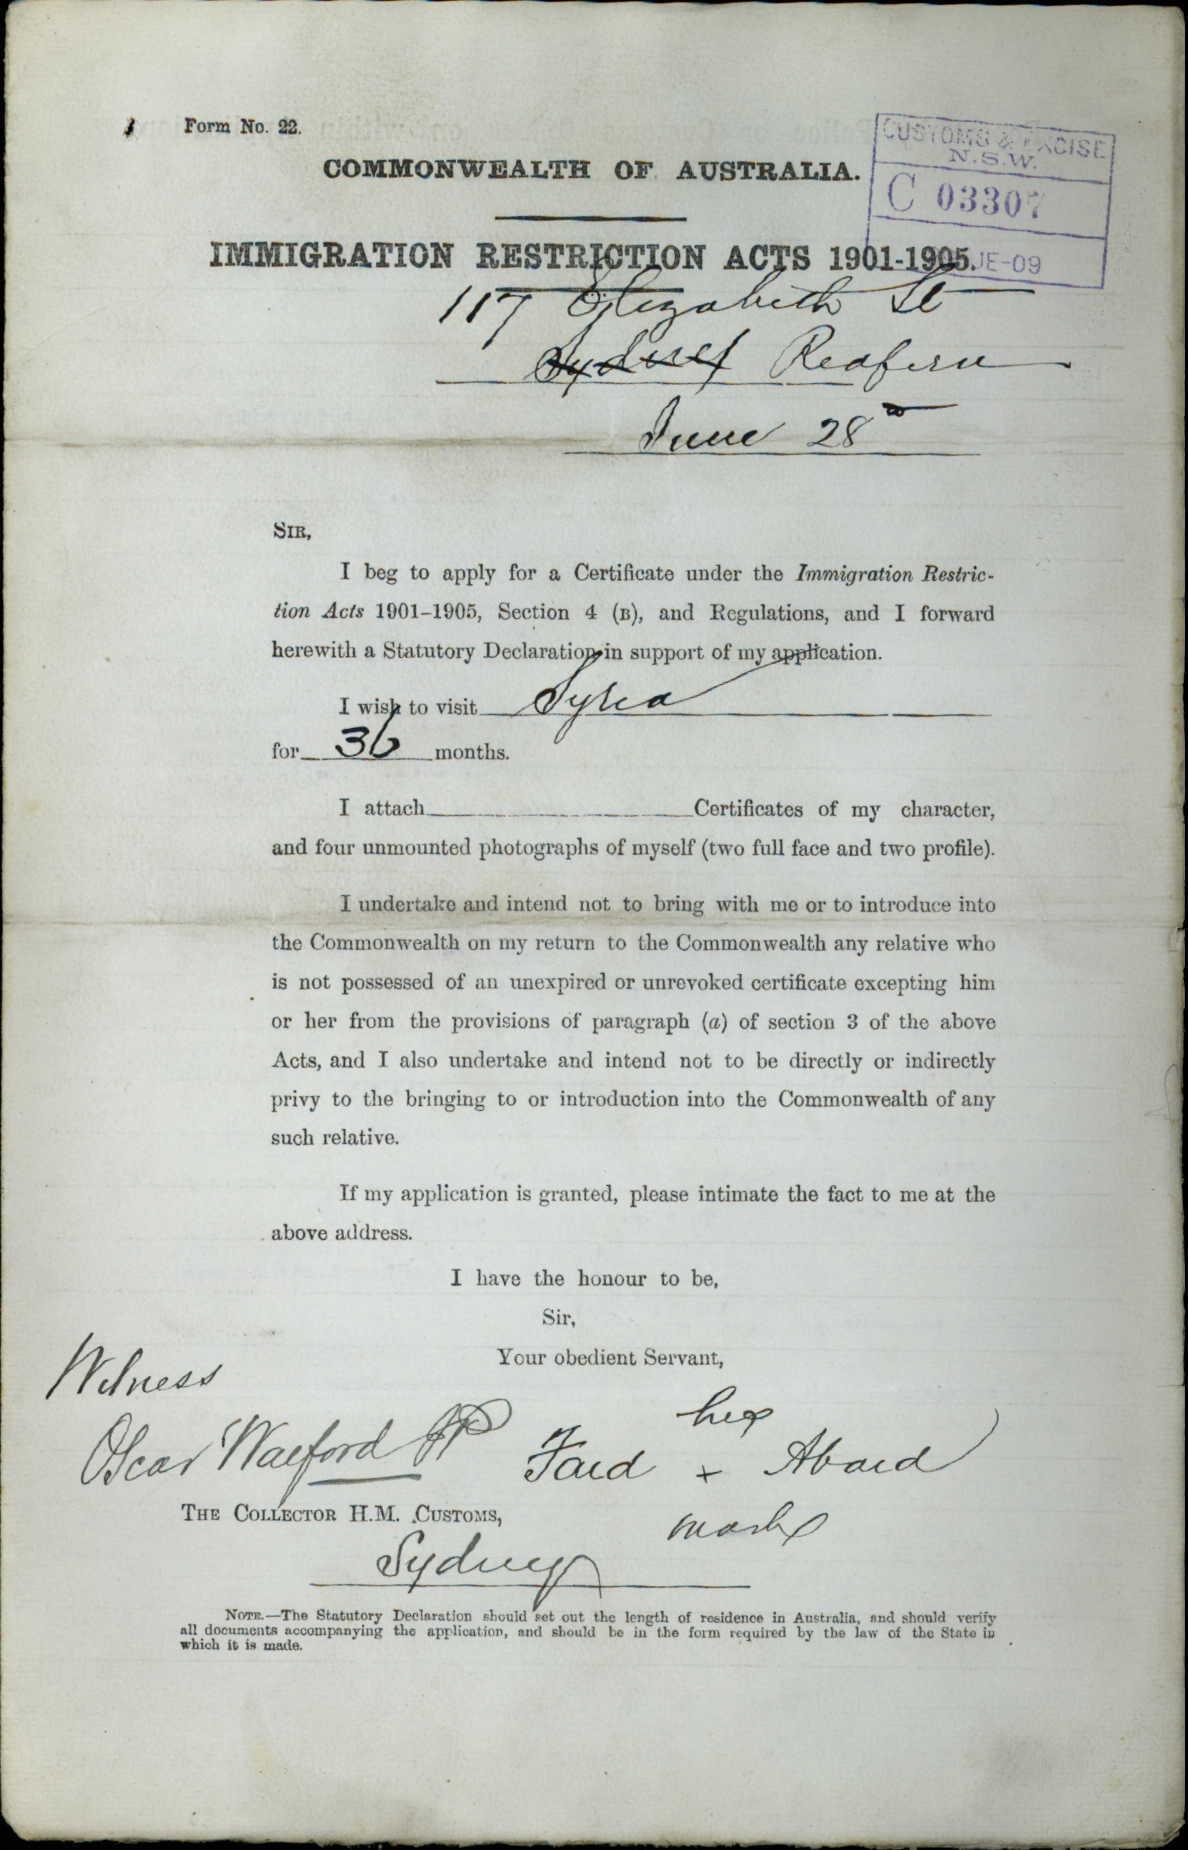 Form No. 22.
CUSTOMS & EXCISE
N.S.W.
C 03307
JE-09
COMMONWEALTH OF AUSTRALIA.
IMMIGRATION RESTRICTION ACTS 1901-1905.
117 Elizabeth St
Sydney Redfern
June 28
SIR,
I beg to apply for a Certificate under the Immigration Restric-
tion Acts 1901–1905, Section 4 (B), and Regulations, and I forward
herewith a Statutory Declaration in support of my application.
I wish to visit Syria
for 36 months.
I attach Certificates of my character,
and four unmounted photographs of myself (two full face and two profile).
I undertake and intend not to bring with me or to introduce into
the Commonwealth on my return to the Commonwealth any relative who
is not possessed of an unexpired or unrevoked certificate excepting him
or her from the provisions of paragraph (a) of section 3 of the above
Acts, and I also undertake and intend not to be directly or indirectly
privy to the bringing to or introduction into the Commonwealth of any
such relative.
If my application is granted, please intimate the fact to me at the
above address.
I have the honour to be,
Sir,
Your obedient Servant,
Witness
Oscar JP
his
Faid + Aboud
mark
THE COLLECTOR H.M. CUSTOMS,
Sydney
NOTE.—The Statutory Declaration should set out the length of residence in Australia, and should verify
all documents accompanying the application, and should be in the form required by the law of the State in
which it is made.